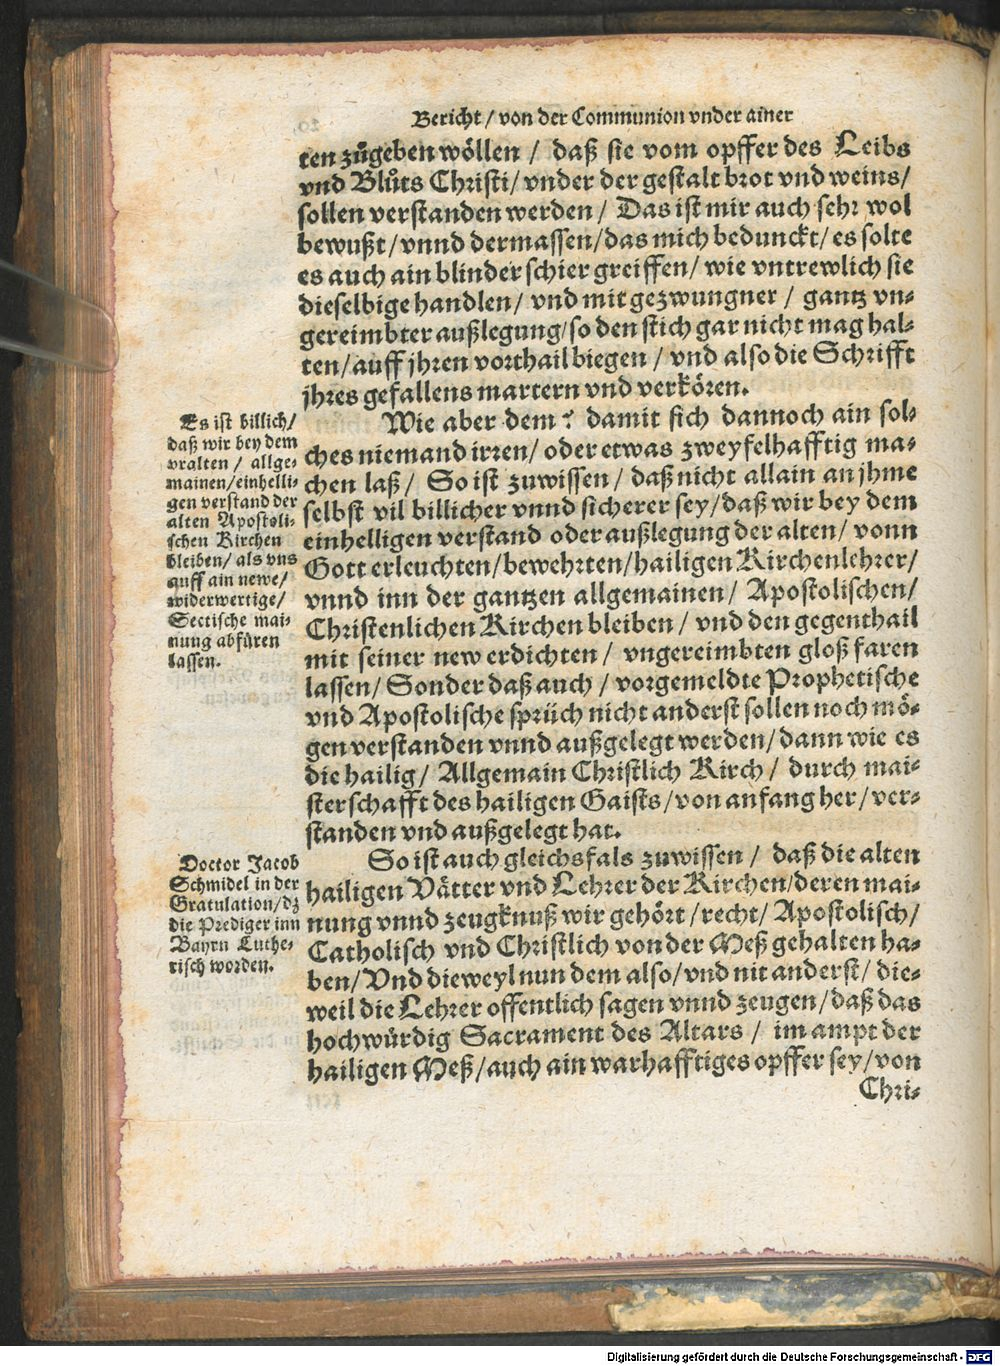 Bericht / von der Communion vnder ainer
ten zůgeben wöllen / daß sie vom opffer des Leibs
vnd Blůts Christi / vnder der gestalt brot vnd weins /
sollen verstanden werden / Das ist mir auch sehr wol
bewußt / vnnd dermassen / das mich bedunckt / es solte
es auch ain blinder schier greiffen / wie vntrewlich sie
dieselbige handlen / vnd mit gezwungner / gantz vn-
gereimbter außlegung / so den stich gar nicht mag hal-
ten / auff jhren vorthail biegen / vnd also die Schrifft
jhres gefallens martern vnd verkören.
Es ist billich /
daß wir bey dem
vralten / allge-
mainen / einhelli-
gen verstand der
alten Apostoli-
schen Kirchen
bleiben / als vns
auff ain newe /
widerwertige /
Sectische mai-
nung abfüren
lassen.
Wie aber dem? damit sich dannoch ain sol-
ches niemand irren / oder etwas zweyfelhafftig ma-
chen laß / So ist zuwissen / daß nicht allain an jhme
selbst vil billicher vnnd sicherer sey / daß wir bey dem
einhelligen verstand oder außlegung der alten / vonn
Gott erleuchten / bewehrten / hailigen Kirchenlehrer /
vnnd inn der gantzen allgemainen / Apostolischen /
Christenlichen Kirchen bleiben / vnd den gegenthail
mit seiner new erdichten / vngereimbten gloß faren
lassen / Sonder daß auch / vorgemeldte Prophetische
vnd Apostolische sprüch nicht anderst sollen noch mö-
gen verstanden vnnd außgelegt werden / dann wie es
die hailig / Allgemain Christlich Kirch / durch mai-
sterschafft des hailigen Gaists / von anfang her / ver-
standen vnd außgelegt hat.
Doctor Jacob
Schmidel in der
Gratulation / dz
die Prediger inn
Bayrn Luthe-
risch worden.
So ist auch gleichsfals zuwissen / daß die alten
hailigen Vätter vnd Lehrer der Kirchen / deren mai-
nung vnnd zeugknuß wir gehört / recht / Apostolisch /
Catholisch vnd Christlich von der Meß gehalten ha-
ben / Vnd dieweyl nun dem also / vnd nit anderst / die-
weil die Lehrer offentlich sagen vnnd zeugen / daß das
hochwürdig Sacrament des Altars / im ampt der
hailigen Meß / auch ain warhafftiges opffer sey / von
Chri-
Digitalisierung gefördert durch die Deutsche Forschungsgemeinschaft - DFG